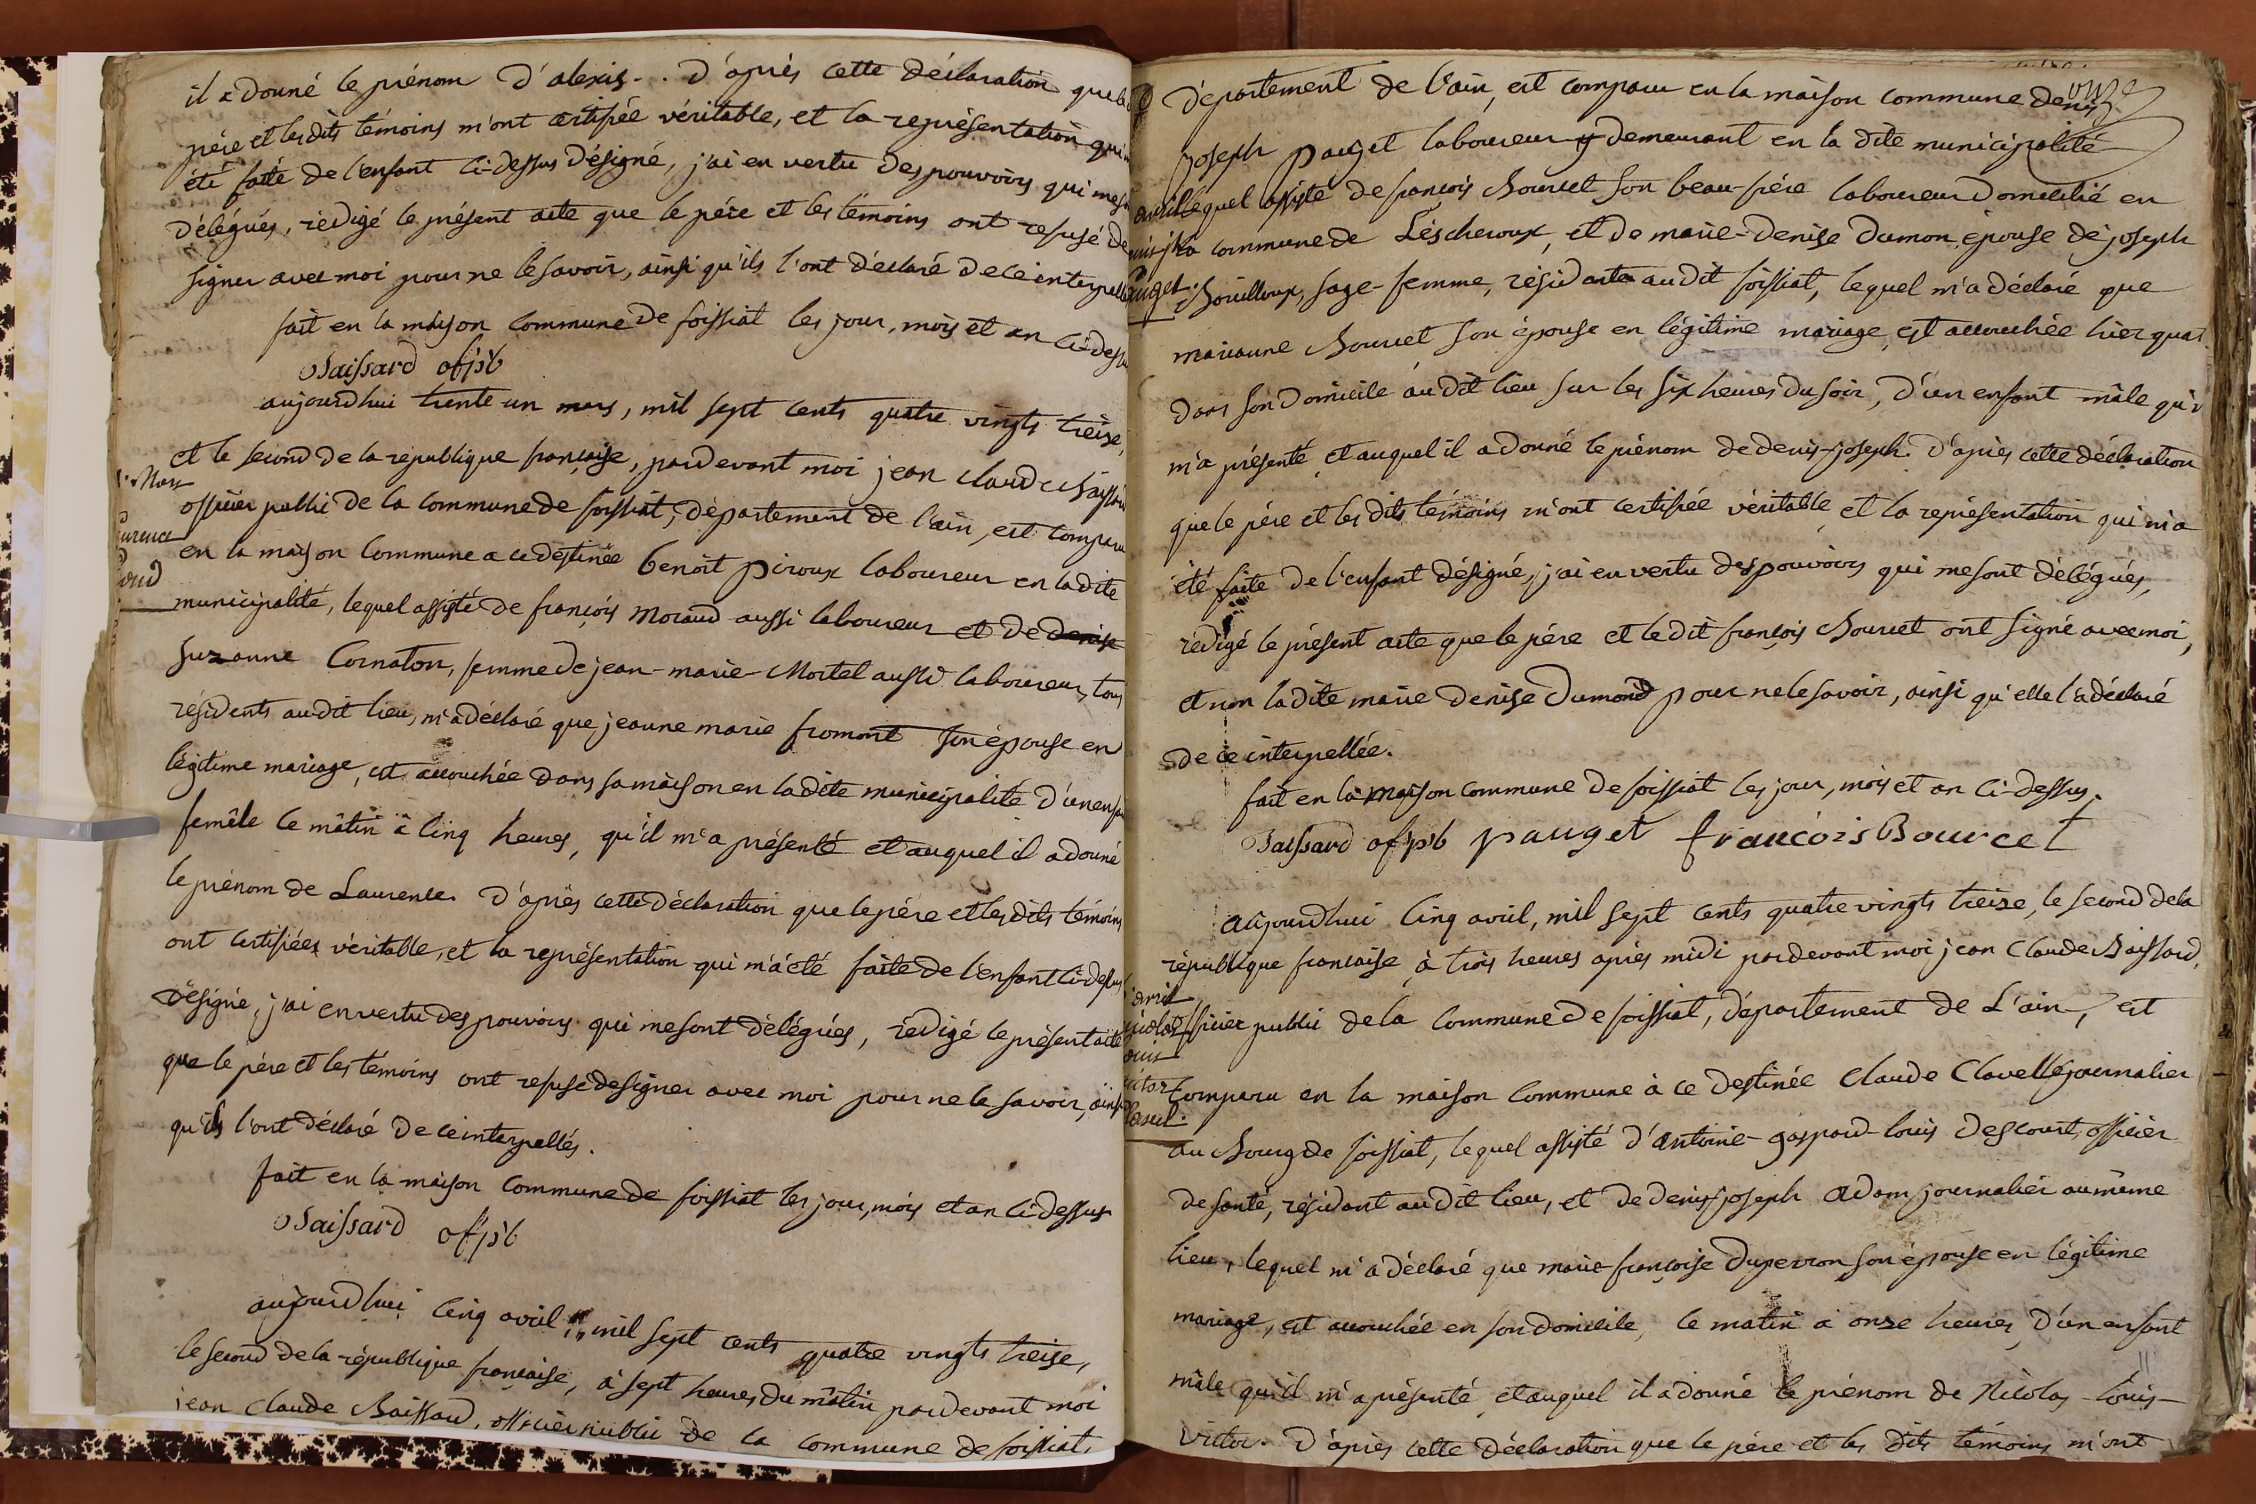 il a donné le prénom d'alexis. . d'après cette déclaration que le
père et les dits témoins m'ont certifiée véritable, et la représentation qui
été faite de l'enfant ci-dessus désigné, j'ai en vertu des pouvoirs qui me s
délégués, rédigé le présent acte que le père et les témoins ont refusé de
signer avec moi pour ne le savoir, ainsi qu'ils l'ont déclaré de ce interpell
fait en la maison commune de foissiat les jour, mois et an ci-dess
Baissard of. pb
aujourdhui trente un mars, mil sept cents quatre vingts treize,
et le second de la republique française, pardevant moi jean claude Baissard
officier public de la commune de foissiat, département de l'ain, est comparu
en la maison commune a ce destinée benoît piroux laboureur en la dite
municipalité, lequel assisté de françois Moraud aussi laboureur et de denise
suzanne Cornaton, femme de jean-marie-Mortel aussi laboureur, tous
résidents audit lieu, m'a déclaré que jeanne marie fromont son épouse en
légitime mariage, est accouchée dans sa maison en la dite municipalité d'un enfa
femêle le mâtin à cinq heures, qu'il m'a présenté et auquel il a donné
le prénom de Laurence. D'après cette déclaration que le père et les dits témoins
ont certifiée véritable, et la représentation qui m'a été faite de l'enfant ci-dessus
désigné, j'ai en vertu des pouvoirs qui me sont délégués, rédigé le présent acte
que le père et les témoins ont refusé de signer avec moi pour ne le savoir, ainsi
qu'ils l'ont déclaré de ce interpellés.
fait en la maison commune de foissiat les jour, mois et an ci-dessus
Baissard of. pb
aujourdhui cinq avril, mil sept cents quatre vingts treize,
le second de la république française, à sept heures du mâtin pardevant moi
jean Claude Baissard, officier public de la commune de foissiat,
Mars
urence
oud
onze
département de l'ain, est comparu en la maison commune denis
joseph pauget laboureur y demeurant en la dite municipalité
lequel assisté de françois Bourcet son beau-frère laboureur domicilié en
la commune de Lescheroux, et de marie-denise dumon, épouse de joseph
Bouilloux, sage-femme, résidante audit foissiat, lequel m'a déclaré que
marianne Bourcet son épouse en légitime mariage, est accouchée hier quat
dans son domicile audit lieu sur les six heures du soir, d'un enfant mâle qu'il
m'a présenté et auquel il a donné le prénom de denis-joseph. D'après cette déclaration
que le père et les dits témoins m'ont certifiée véritable et la représentation qui m'a
été faite de l'enfant désigné, j'ai en vertu des pouvoirs qui me sont délégués,
rédigé le présent acte que le père et le dit françois Bourcet ont signé avec moi,
et non la dite marie denise Dumond pour ne le savoir, ainsi qu'elle l'a déclaré
de ce interpellée.
fait en la maison commune de foissiat les jour, mois et an ci-dessus.
Baissard of. pb pauget françois Bourcet
aujourdhui cinq avril, mil sept cents quatre vingts treize, le second de la
république française à trois heures après midi pardevant moi jean Claude Baissard,
officier public de la commune de foissiat, département de L'ain, est
comparu en la maison commune à ce destinée Claude Clavel journalier
au Bourg de foissiat, lequel assisté d'antoine-gaspard-louis descourt, officier
de santé, résidant audit lieu, et de denis-joseph adam journalier au même
lieu, lequel m'a déclaré que marie-françoise Duperron son épouse en légitime
mariage, est accouchée en son domicile, le matin à onze heures, d'un enfant
mâle qu'il m'a présenté et auquel il a donné le prénom de Nicolas-Louis-
Victor. D'après cette déclaration que le père et les dits témoins m'ont
avril
nis j
auget.
avril
nicolas
ouis
ictor
lavel.